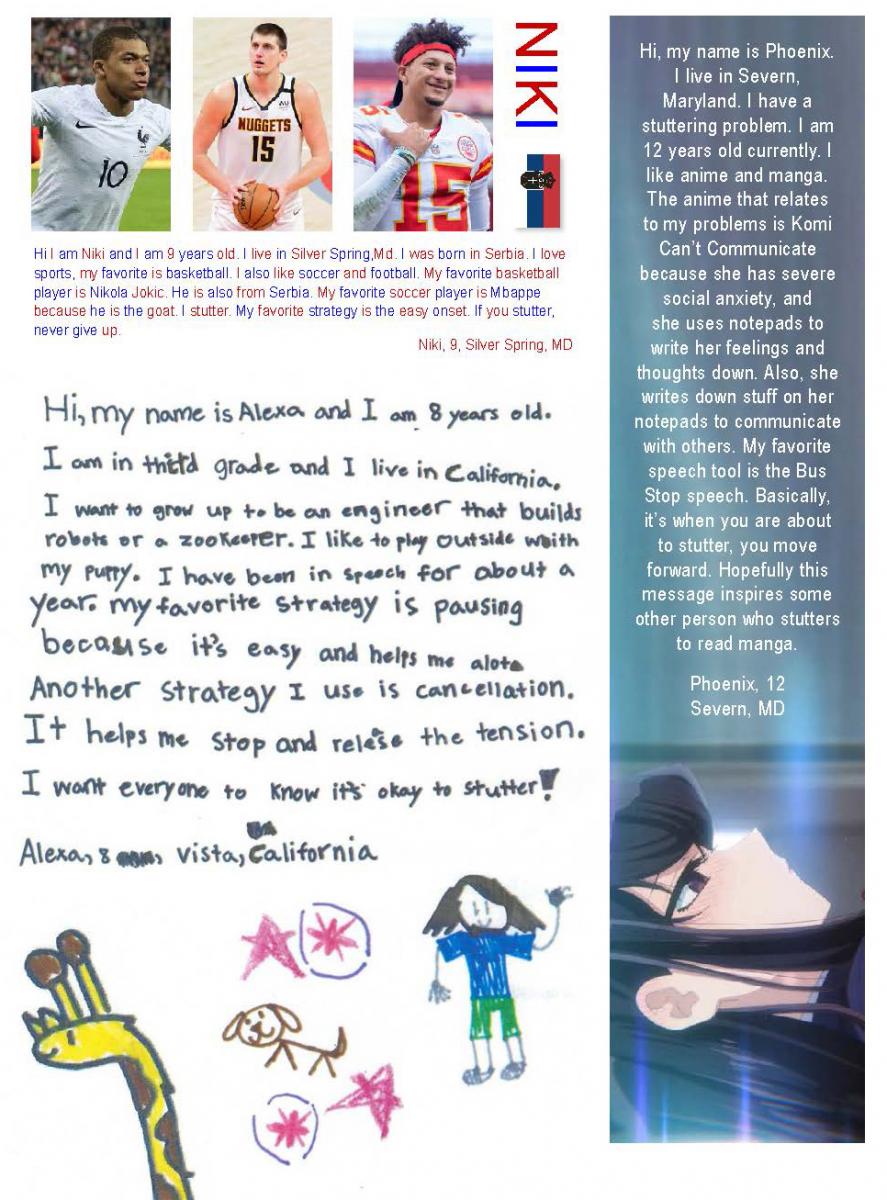 10
NUGGETS
15
15
NIKI
Hi I am Niki and I am 9 years old. I live in Silver Spring,Md. I was born in Serbia. I love
sports, my favorite is basketball. I also like soccer and football. My favorite basketball
player is Nikola Jokic. He is also from Serbia. My favorite soccer player is Mbappe
because he is the goat. I stutter. My favorite strategy is the easy onset. If you stutter,
never give up.
Niki, 9, Silver Spring, MD
Hi, my name is Alexa and I am 8 years old.
I am in third grade and I live in California.
I want to grow up to be an engineer that builds
robots or a zookeeper. I like to play outside with
my puppy. I have been in speech for about a
year. my favorite strategy is pausing
because it's easy and helps me alot.
Another strategy I use is cancellation.
It helps me stop and release the tension.
I want everyone to know it's okay to stutter!
Alexa, 8, Vista, California
Hi, my name is Phoenix.
I live in Severn,
Maryland. I have a
stuttering problem. I am
12 years old currently. I
like anime and manga.
The anime that relates
to my problems is Komi
Can't Communicate
because she has severe
social anxiety, and
she uses notepads to
write her feelings and
thoughts down. Also, she
writes down stuff on her
notepads to communicate
with others. My favorite
speech tool is the Bus
Stop speech. Basically,
it's when you are about
to stutter, you move
forward. Hopefully this
message inspires some
other person who stutters
to read manga.
Phoenix, 12
Severn, MD